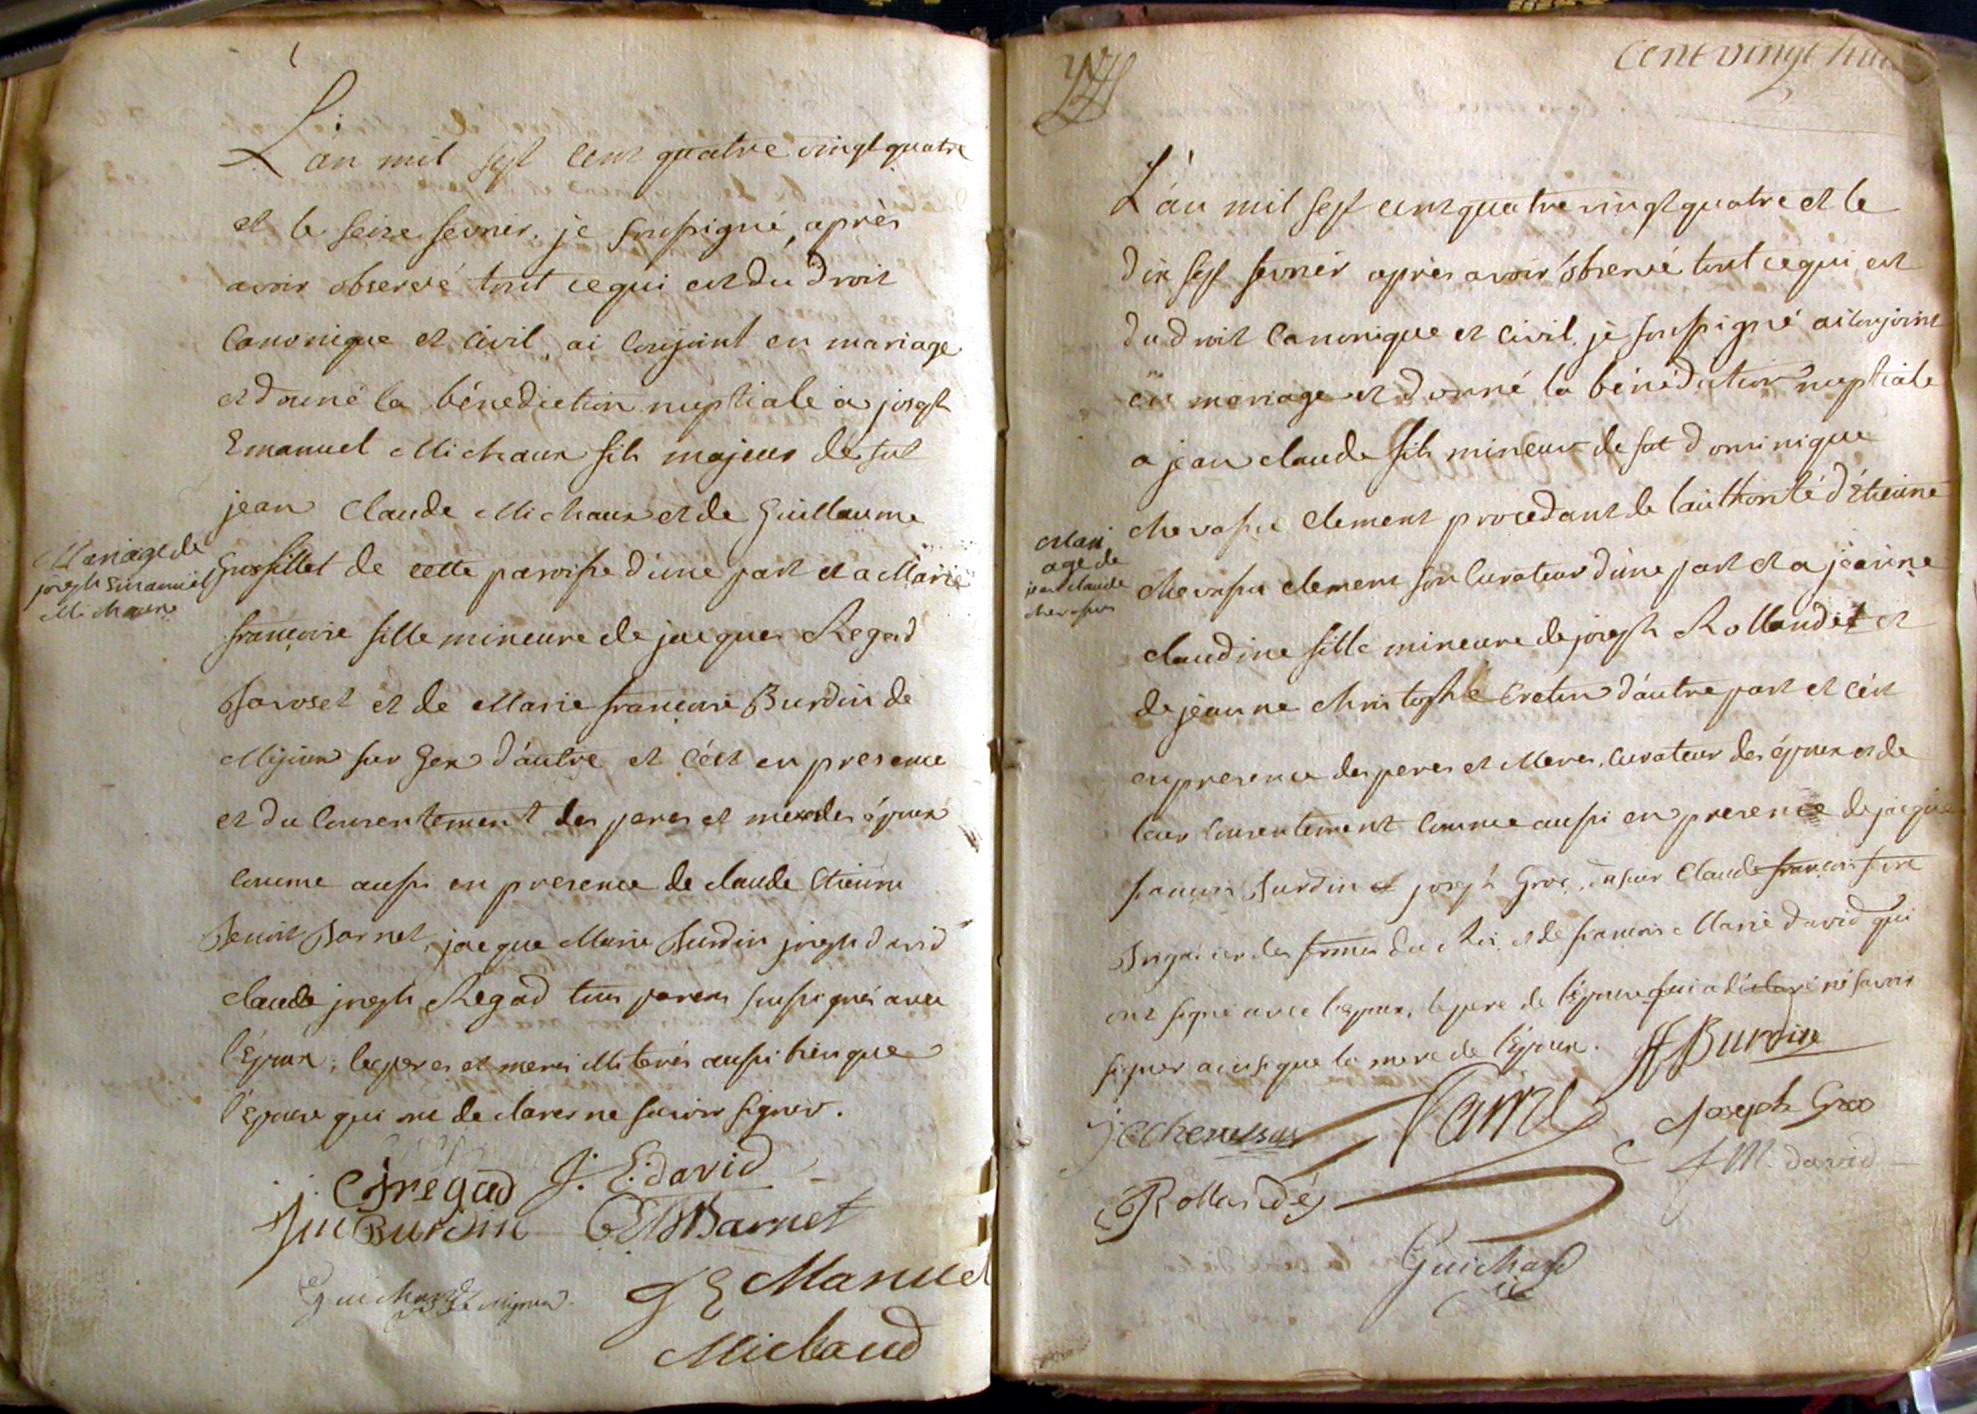 L'an mil sept cent quatre vingt quatre
et le seize fevrier. je soussigné, aprés
avoir observé tout ce qui est du droit
Canonique et civil, ai conjoint en mariage
et donné la bénediction nuptiale a joseph
Emanuel Michaux fils majeur de fut
jean Claude Michaux et de Guillaume
Grosfillet de cette paroisse d'une part et a Marie
françoise fille mineure de jacques Regad
et de Marie françoise Burdin de
Mijoux sur Gex d'autre et c'est en presence
et du consentement des peres et meres des époux
comme aussi en presence de claude Etienne
Benoit Barnet, jacque Marie Burdin joseph david
claude joseph Regad tous parens soussignés avec
l'Epoux, les peres et meres illiterés aussi bien que
l'Epouse qui ont declarer ne savoir signer.
Mariage de
joseph Emanuel
Michaux
CJ regad J. E. david
JM Burdin CEB Barnet
Guichard
J E Manuel
Michaud
Cent vingt huit
L'an mil sept cent quatre vingt quatre et le
dix sept fevrier aprés avoir observé tout ce qui est
du droit Canonique et civil, je soussigné ai conjoint
en mariage et donné la bénédiction nuptiale
a jean claude fils mineur de fut dominique
chevassu clement procedant de l'authorité d'Etienne
chevassu clement son Curateur d'une part et a jeanne
claudine fille mineure de joseph Rollandet et
de jeanne christophle Cretin d'autre part et c'est
en presence des peres et Meres, Curateur des époux et de
leur consentement comme aussi en presence de jacque
francois Burdin et joseph Groz, Claude francois
des fermes du Roi, et de francois Marie david qui
ont signé avec l'epoux, le pere de l'épouse qui a déclaré ne savoir
signer ainsi que la mere de l'Epoux.
Mari
age de
jean claude
chevassus
JF Burdin
jc chevassus Joseph Groz
F M. david
Rollandé
Guichard